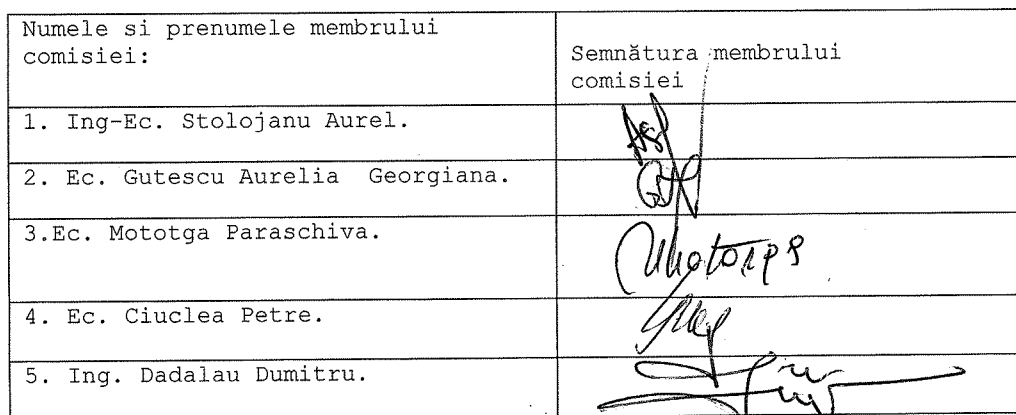 Numele si prenumele membrului
comisiei:
Semnătura membrului
comisiei
1. Ing-Ec. Stolojanu Aurel.
2. Ec. Gutescu Aurelia  Georgiana.
3.Ec. Mototga Paraschiva.
4. Ec. Ciuclea Petre.
5. Ing. Dadalau Dumitru.